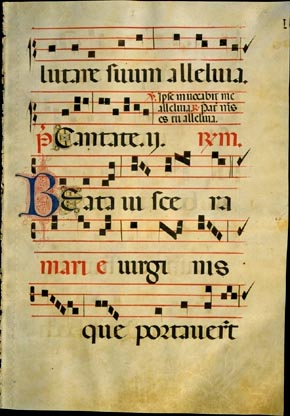 lutare suum alleluia.
℟. Ipse invocabit me
alleluia. ℣. Pat̄ m̄s
es tu alleluia.
p̄s Cantate. ij. ℟m.
Beata vi sce ra
mari e virgi nis
que portaver̄t